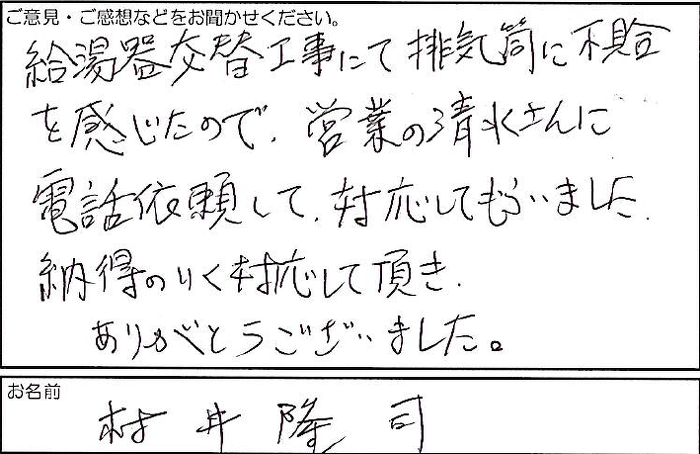 ご意見・ご感想などをお聞かせください。
給湯器交替工事にて排気筒に不具合
を感じたので、営業の清水さんに
電話依頼して、対応してもらいました、
納得のいく対応して頂き、
ありがとうございました。
お名前
村井隆司